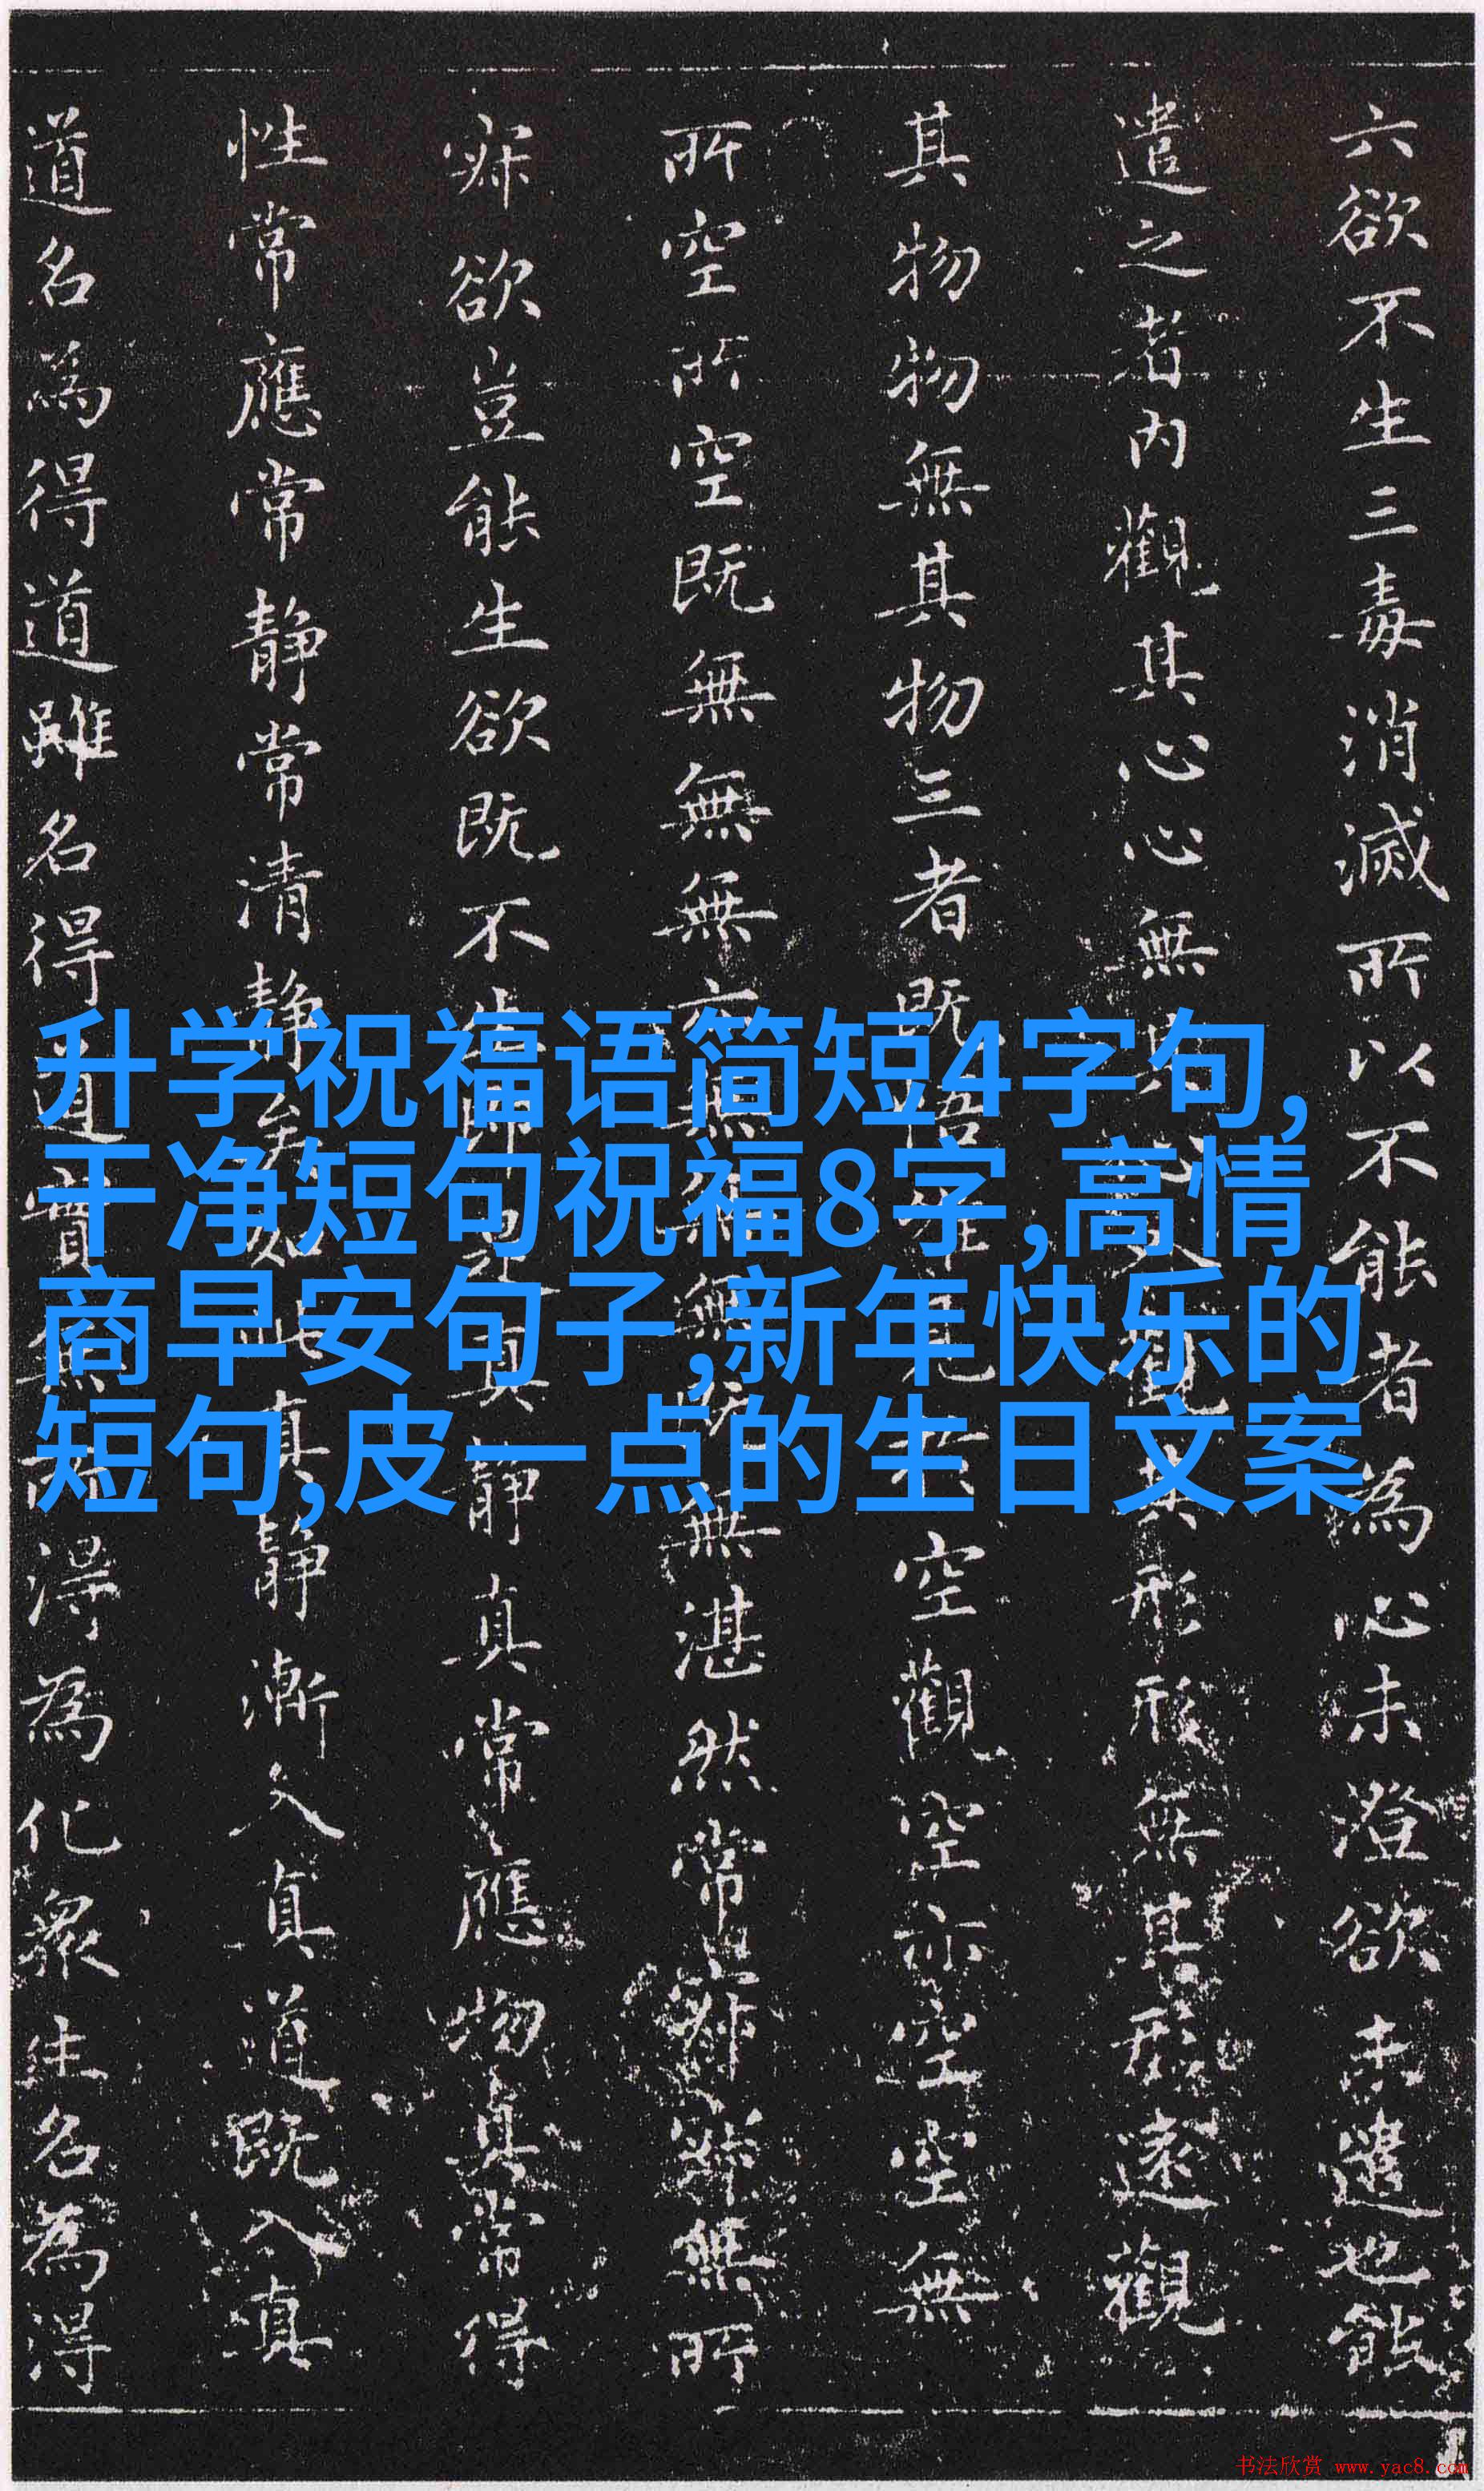 六欲不生三毒消滅所以不能者為心未澄欲未遣也能
遣之者內觀其心心無其心外觀其形形無其形遠觀
其物物無其物三者既悟唯見於空觀空亦空空無
所空所空既無無無亦無無無既無湛然常寂寂無所
寂欲豈能生欲既不生即是真静真常應物真常得
性常應常静常清静矣如此真静漸入真道既入真
道名為得道雖名得道實無所得為化衆生名為得
升学祝福语简短4字句,
干净短句祝福8字,高情
商早安句子,新年快乐的
短句,皮一点的生日文案
书法欣赏 www.yac8.com